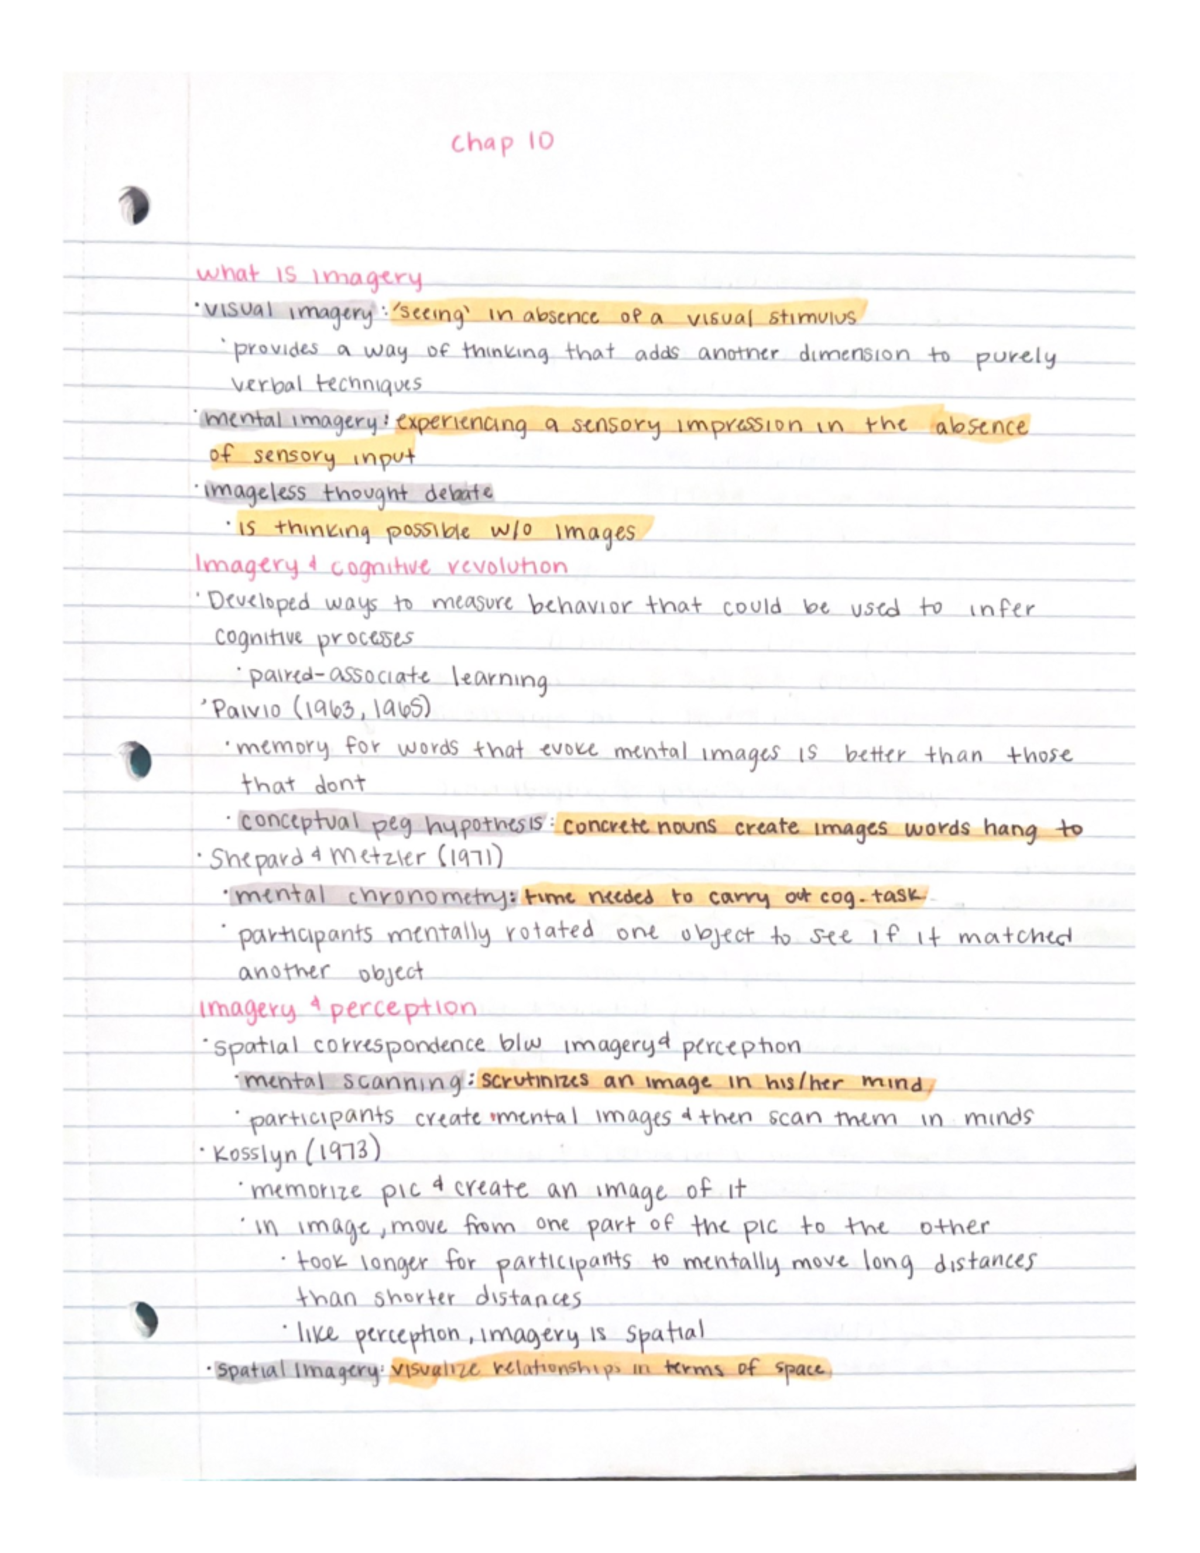 Chap 10
what is imagery
·visual imagery: 'seeing' in absence of a visual stimulus
·provides a way of thinking that adds another dimension to purely
verbal techniques
·mental imagery: experiencing a sensory impression in the absence
of sensory input
·imageless thought debate
·is thinking possible w/o images
Imagery & cognitive revolution
·Developed ways to measure behavior that could be used to infer
cognitive processes
·paired-associate learning
·Paivio (1963, 1965)
·memory for words that evoke mental images is better than those
that dont
·conceptual peg hypothesis: concrete nouns create images words hang to
·Shepard & Metzler (1971)
·mental chronometry: time needed to carry out cog. task
·participants mentally rotated one object to see if it matched
another object
Imagery & perception
·spatial correspondence b/w imagery & perception
·mental scanning: scrutinizes an image in his/her mind
·participants create mental images & then scan them in minds
·Kosslyn (1973)
·memorize pic & create an image of it
·in image, move from one part of the pic to the other
·took longer for participants to mentally move long distances
than shorter distances
·like perception, imagery is spatial
·spatial imagery: visualize relationships in terms of space